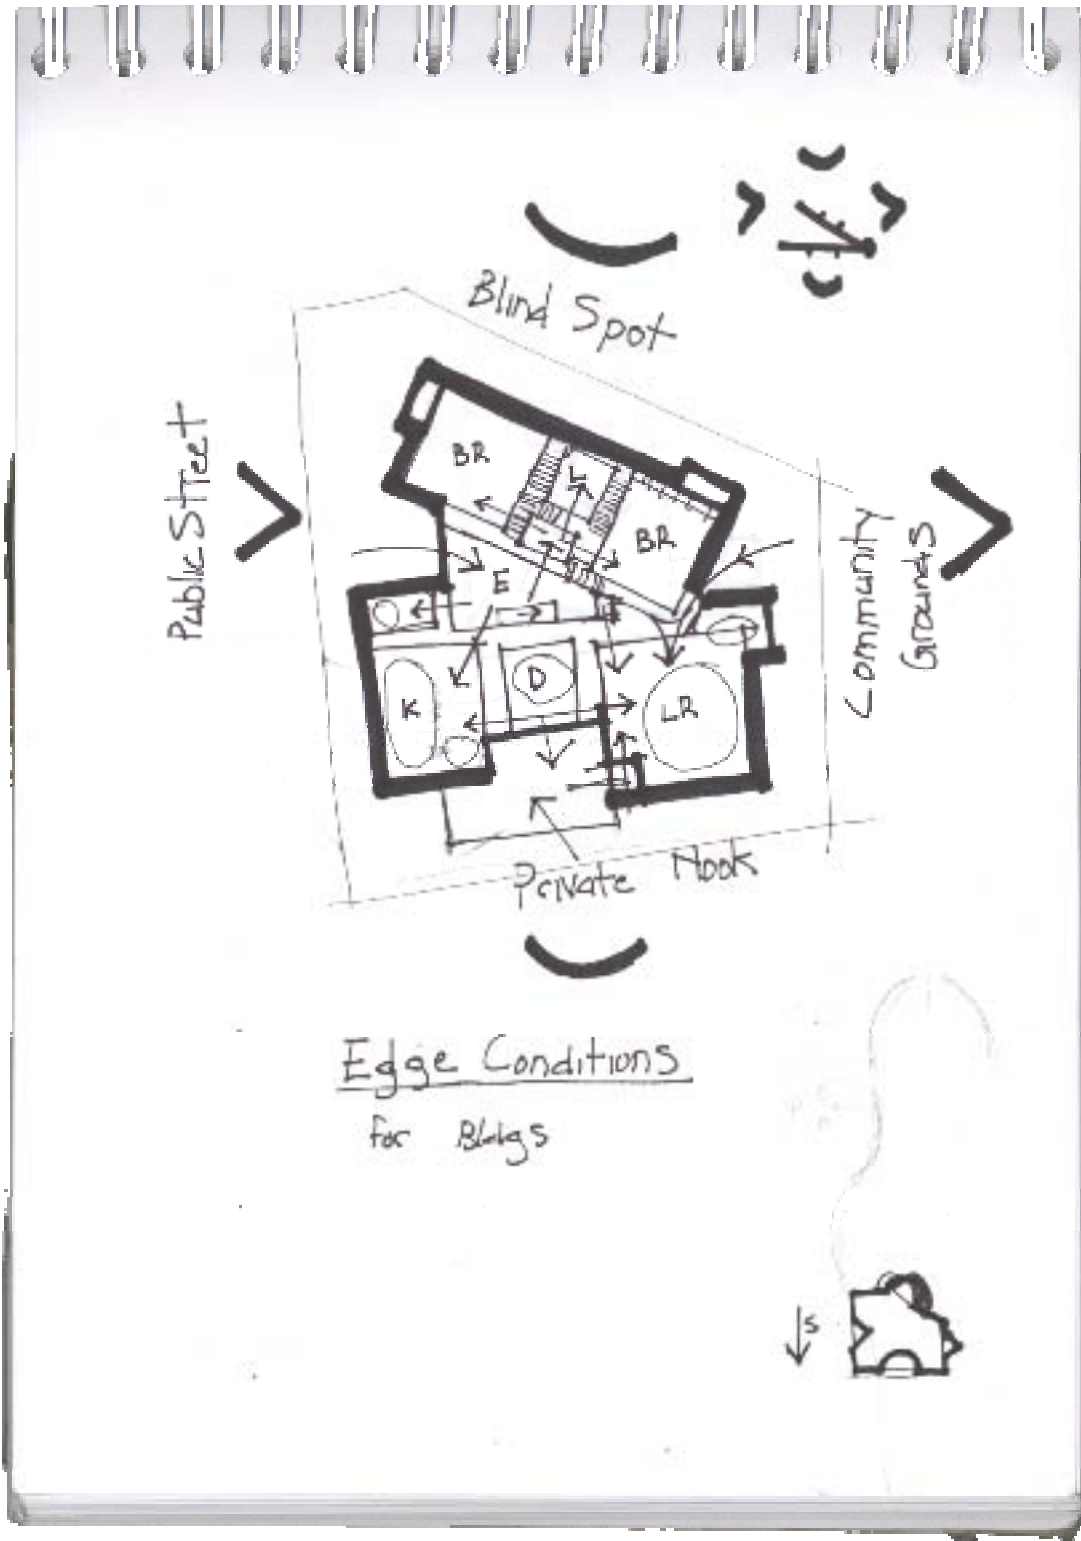 Blind Spot
Public Street
BR
BR
E
Community
Grounds
K
D
LR
Private Nook
Edge Conditions
for Bldgs
S